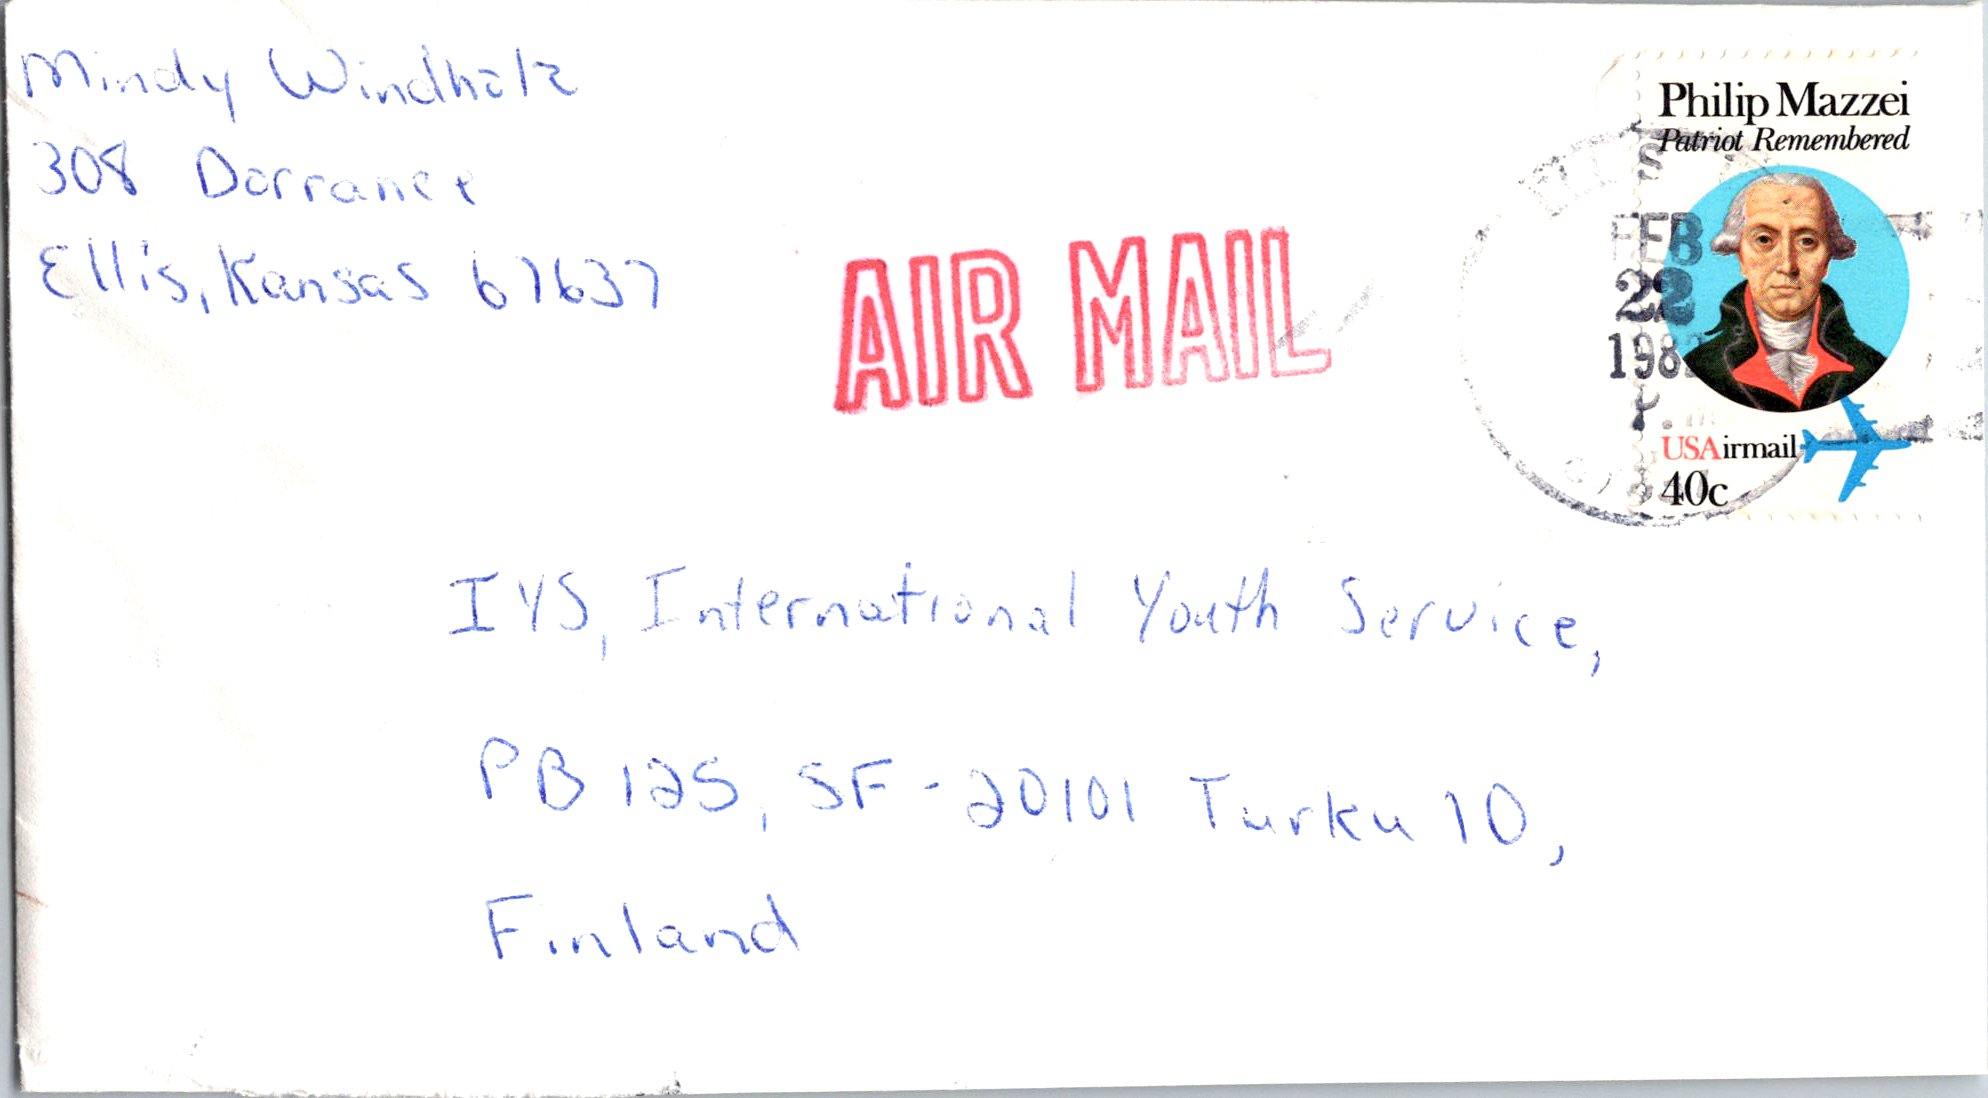 Mindy Windholz
308 Dorrance
Ellis, Kansas 67637
AIR MAIL
Philip Mazzei
Patriot Remembered
ELLIS
FEB
22
198
USAirmail
40c
IYS, International Youth Service,
PB 125, SF-20101 Turku 10,
Finland